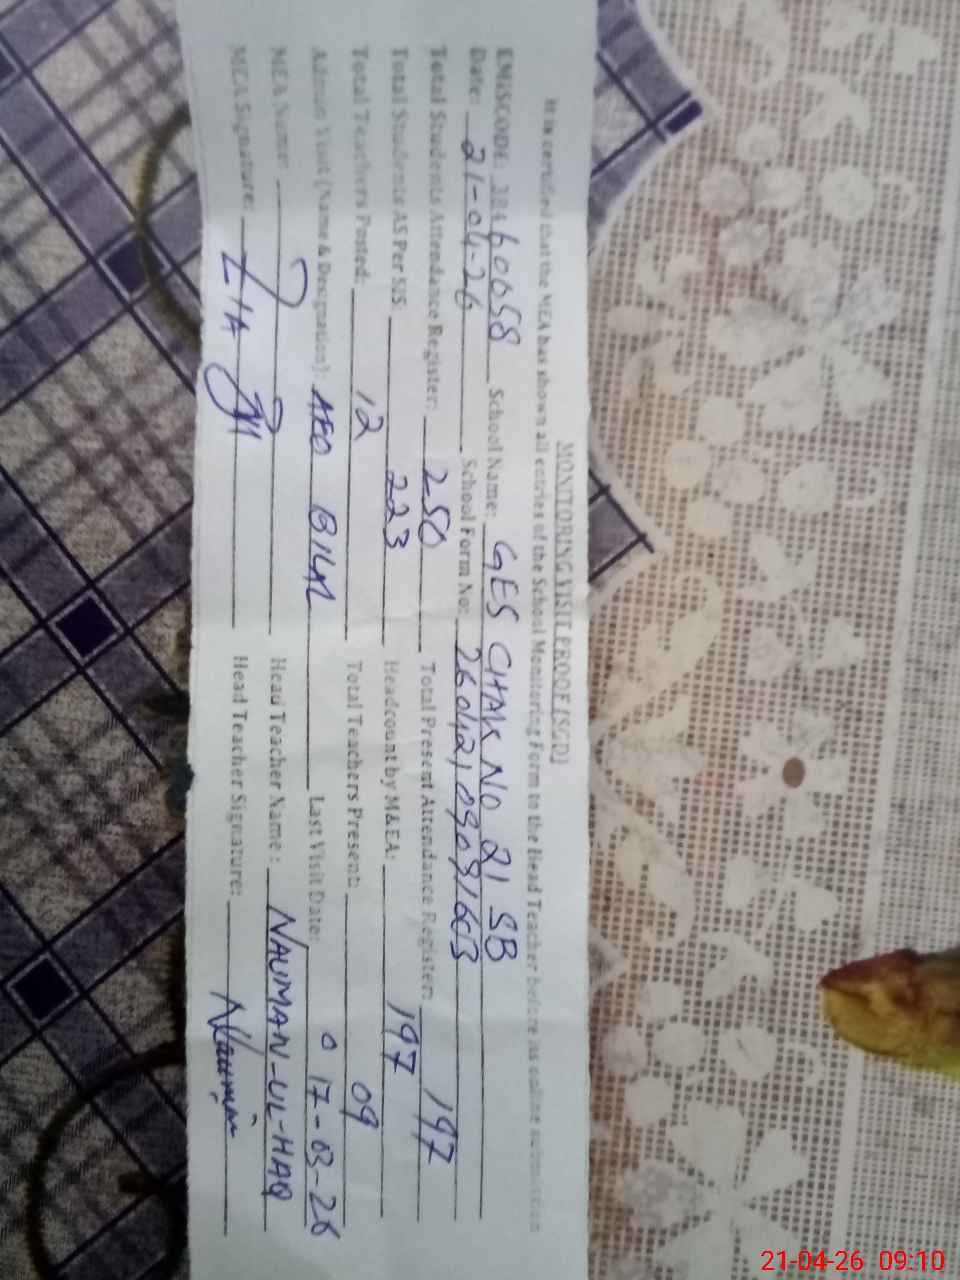 MONITORING VISIT PROOF [SGD]
It is certified that the MEA has shown all entries of the School Monitoring Form to the Head Teacher before its online submission
EMISCODE 38460058 School Name: GES CHAK NO 21 SB
Date: 21-04-26 School Form No: 260421090931603
Total Students Attendance Register: 250 Total Present Attendance Register: 197
Total Students AS Per SIS: 223 Headcount by M&EA: 197
Total Teachers Posted: 12 Total Teachers Present: 09
Admin Visit (Name & Designation): AEO BILAL Last Visit Date: 17-03-26
MEA Name: Head Teacher Name: NAUMAN-UL-HAQ
MEA Signature: Head Teacher Signature: Nauman
21-04-26 09:10